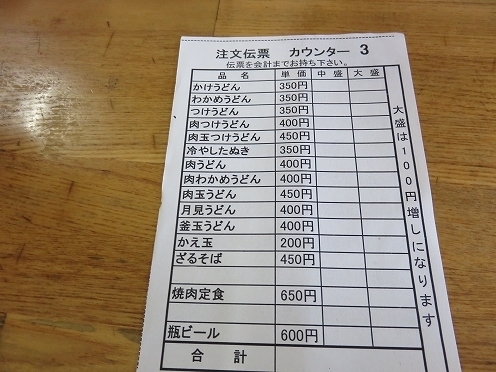 注文伝票 カウンター 3
伝票を会計までお持ち下さい。
品名 単価 中盛 大盛
かけうどん 350円
わかめうどん 350円
つけうどん 350円
肉つけうどん 400円
肉玉つけうどん 450円
冷やしたぬき 350円
肉うどん 400円
肉わかめうどん 400円
肉玉うどん 450円
月見うどん 400円
釜玉うどん 400円
かえ玉 200円
ざるそば 450円
焼肉定食 650円
瓶ビール 600円
合計
大盛は100円増しになります